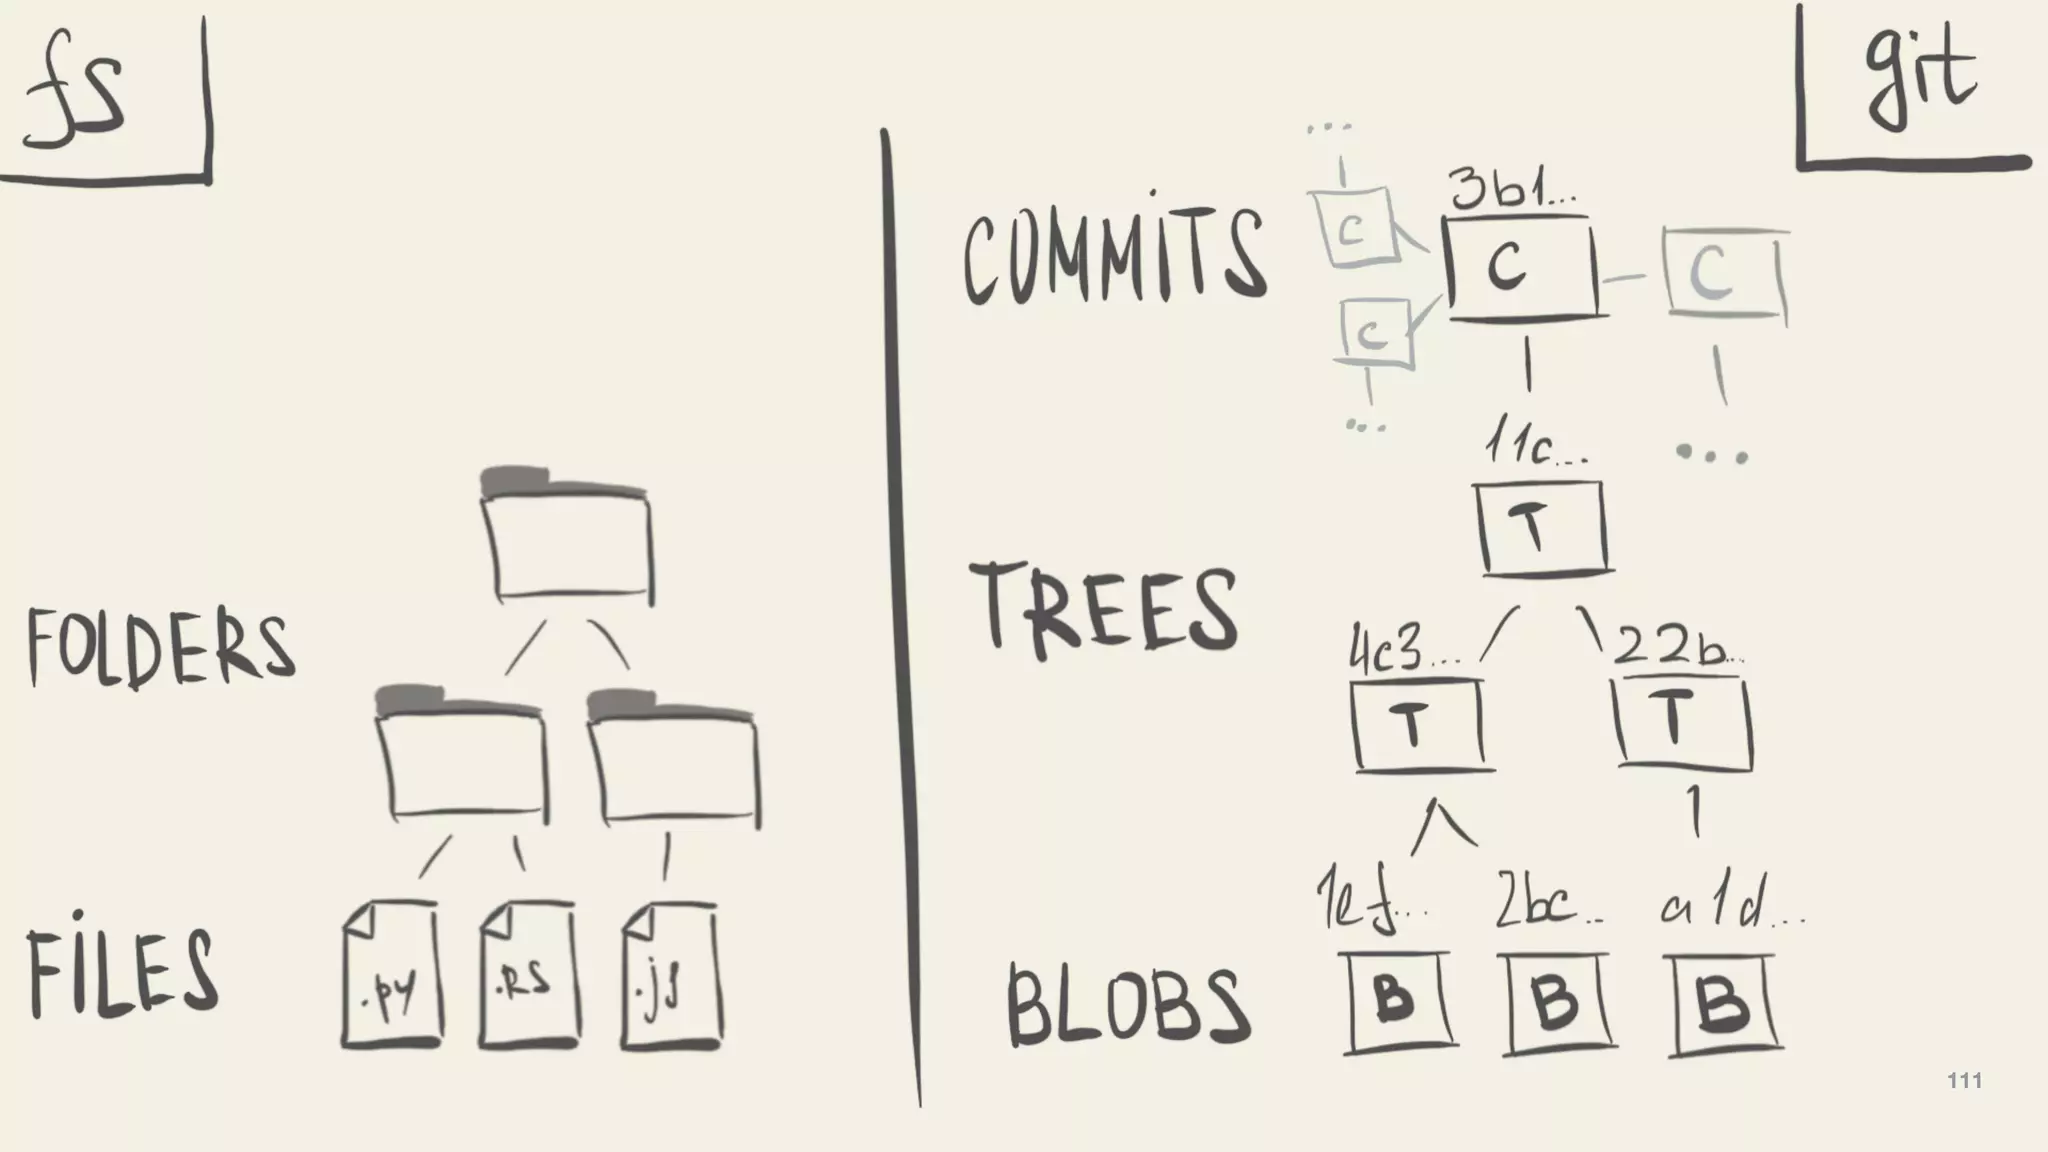 fs
FOLDERS
FILES
.py
.RS
.js
git
COMMITS
...
C
3b1...
C
C
C
...
...
11c...
T
TREES
4c3...
22b...
T
T
1ef...
2bc...
a1d...
BLOBS
B
B
B
111